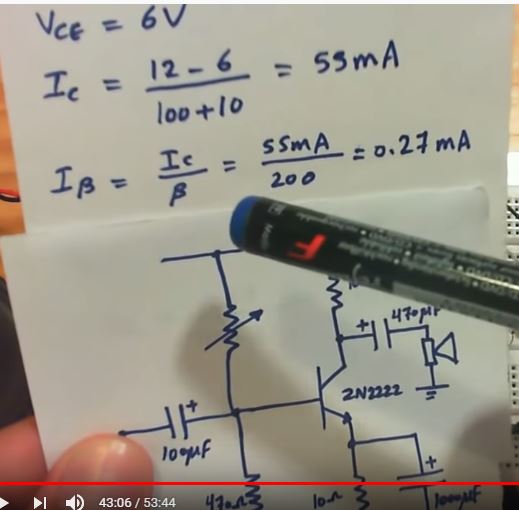 VCE = 6V
Ic = 12 - 6 / 100 + 10 = 55mA
IB = Ic / β = 55mA / 200 = 0.27 mA
F
+ 470µF
2N2222
+
100µF
470Ω
10Ω
+
1000µF
43:06 / 53:44